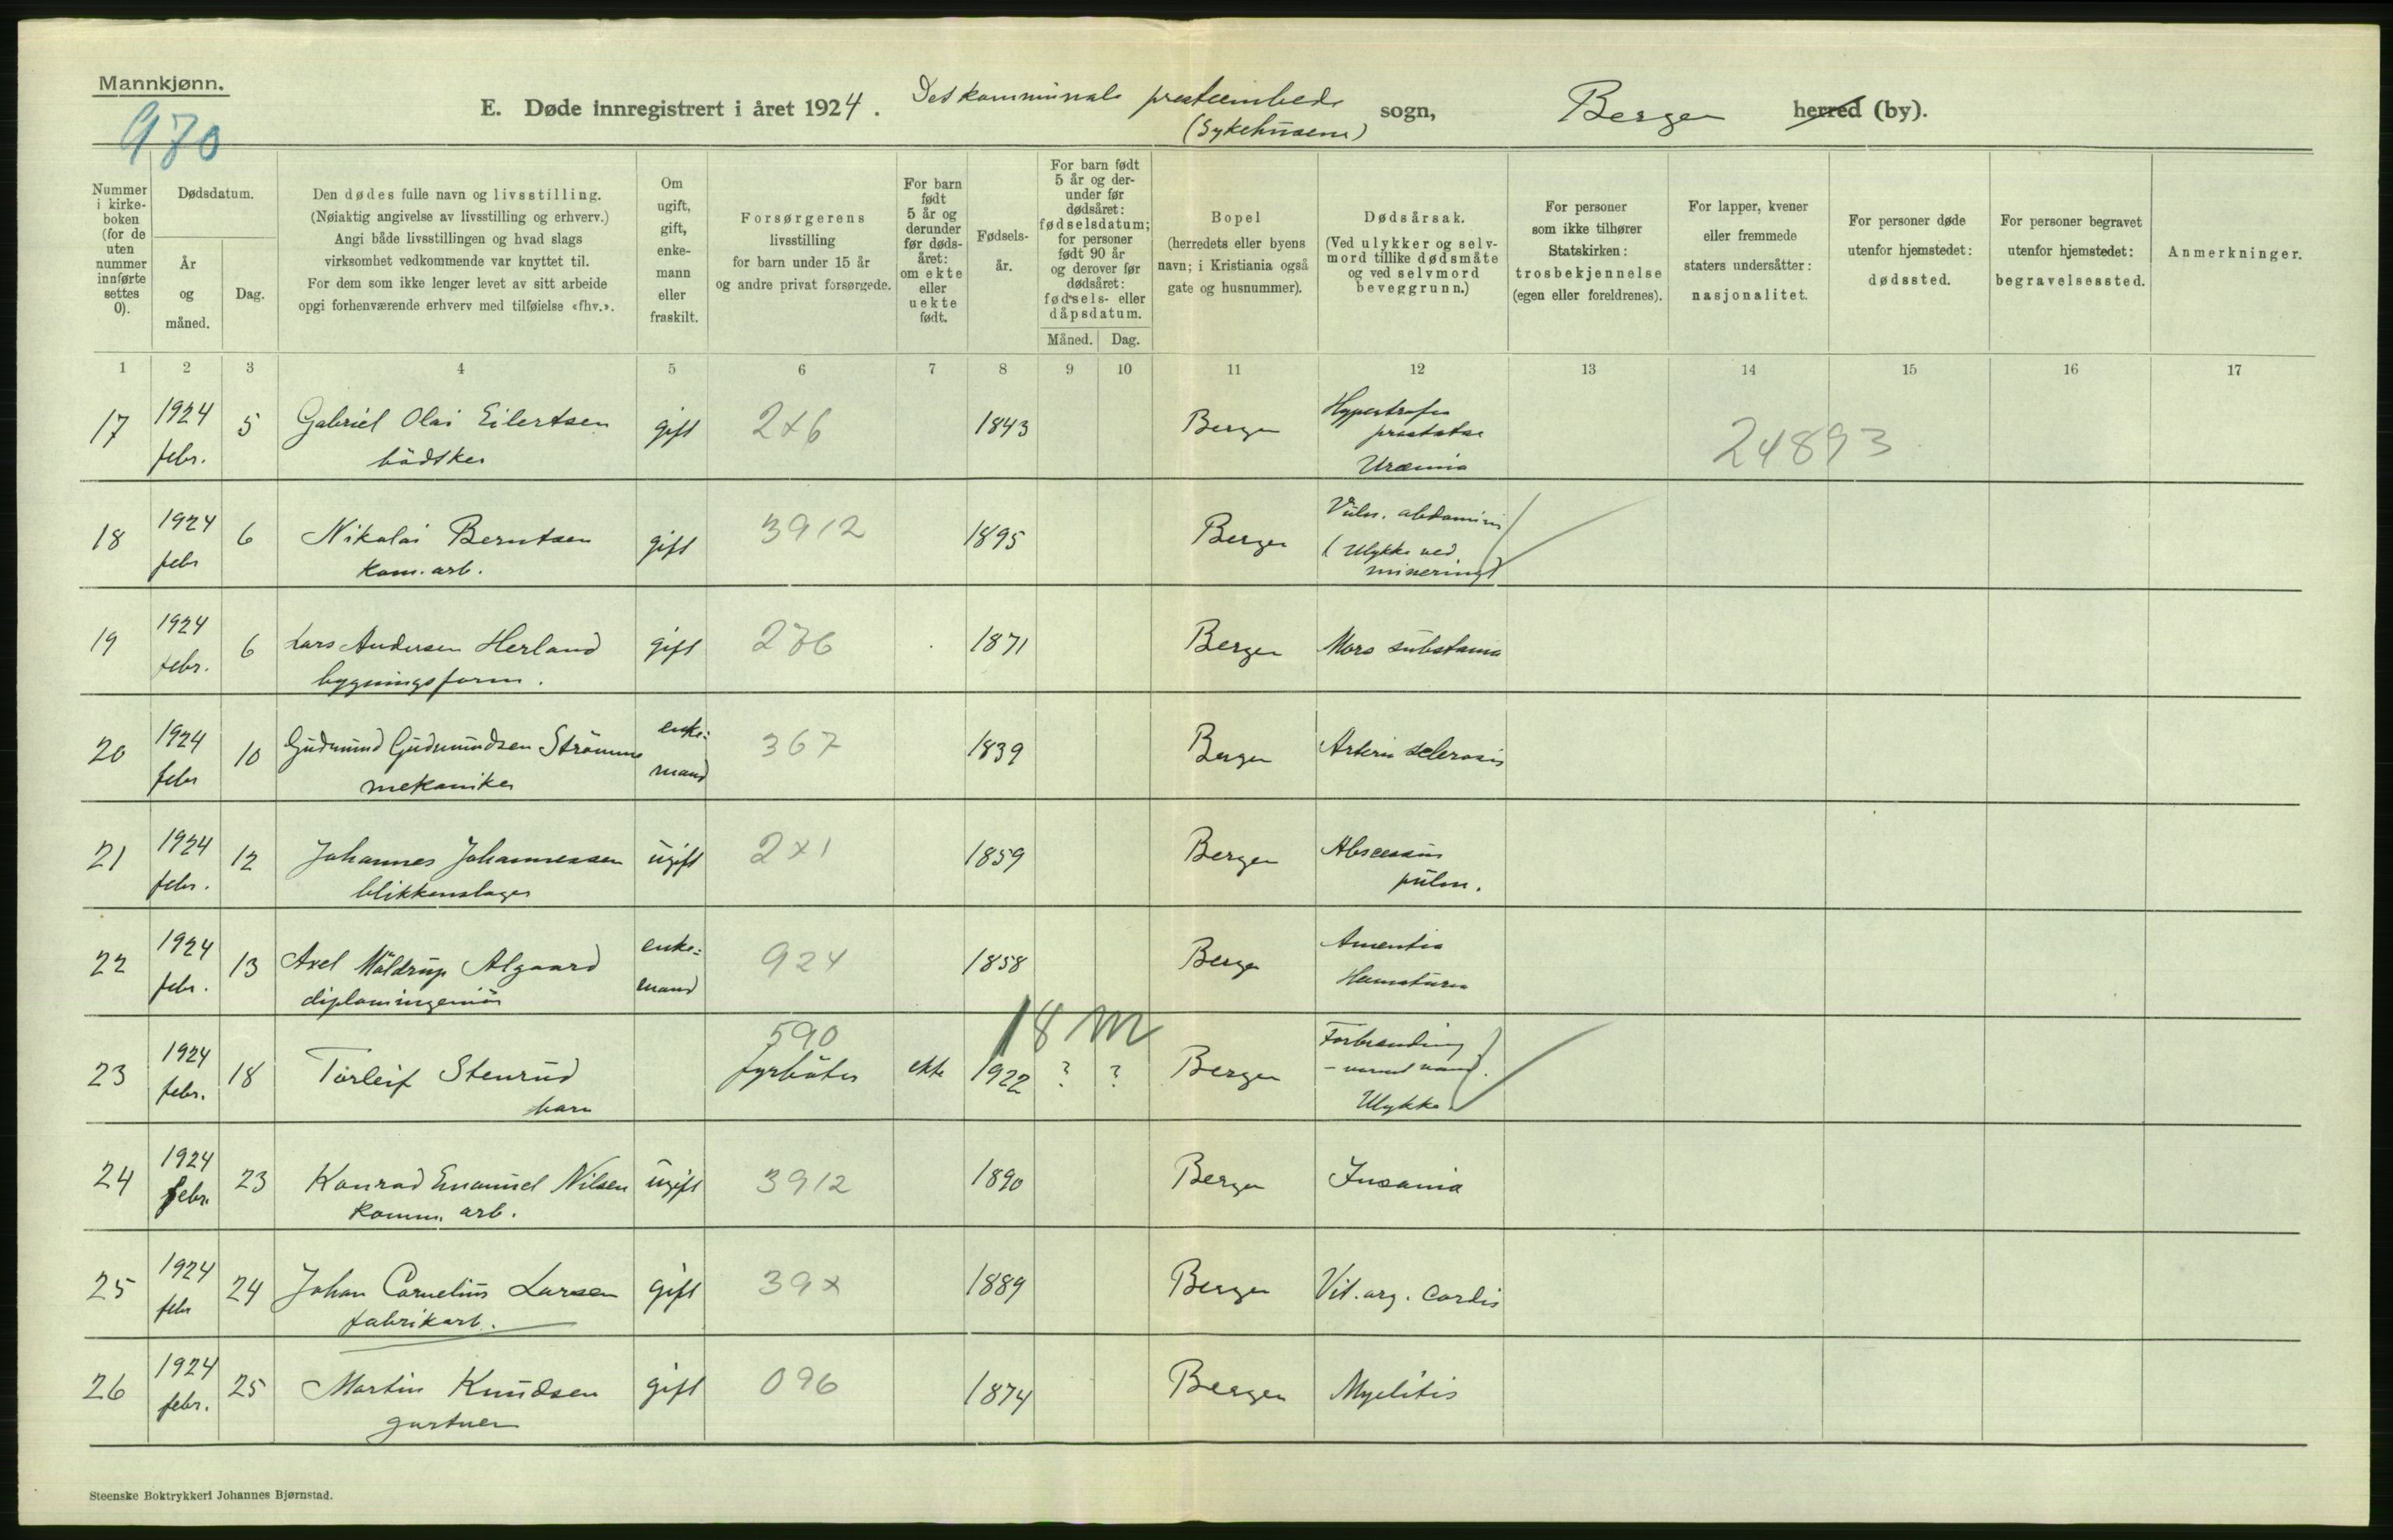 Mannkjønn.
970
E. Døde innregistrert i året 1924. Det kommunale presteembede sogn, Bergen herred (by).
(Sykehusene)
Nummer i kirke-boken (for de uten nummer innførte settes 0).
Dødsdatum.
År og måned.
Dag.
Den dødes fulle navn og livsstilling.
(Nøiaktig angivelse av livsstilling og erhverv.)
Angi både livsstillingen og hvad slags
virksomhet vedkommende var knyttet til.
For dem som ikke lenger levet av sitt arbeide
opgi forhenværende erhverv med tilføielse «fhv.».
Om ugift, gift, enke-mann eller fraskilt.
Forsørgerens
livsstilling
for barn under 15 år
og andre privat forsørgede.
For barn født 5 år og derunder før døds-året: om ekte eller uekte født.
Fødsels-år.
For barn født 5 år og der-under før dødsåret: fødselsdatum; for personer født 90 år og derover før dødsåret: fødsels- eller dåpsdatum.
Måned. Dag.
Bopel
(herredets eller byens
navn; i Kristiania også
gate og husnummer).
Dødsårsak.
(Ved ulykker og selv-
mord tillike dødsmåte
og ved selvmord
beveggrunn.)
For personer
som ikke tilhører
Statskirken:
trosbekjennelse
(egen eller foreldrenes).
For lapper, kvener
eller fremmede
staters undersåtter:
nasjonalitet.
For personer døde
utenfor hjemstedet:
dødssted.
For personer begravet
utenfor hjemstedet:
begravelsessted.
Anmerkninger.
1 2 3 4 5 6 7 8 9 10 11 12 13 14 15 16 17
17 1924 febr. 5 Gabriel Olai Eilertsen gift 2x6 1843 Bergen Hypertrofia prostatae Uræmia 24893
bødtker
18 1924 febr 6 Nikolai Berntsen gift 3912 1895 Bergen Vuln. abdominis (Ulykke ved minering)
kom. arb.
19 1924 febr. 6 Lars Andersen Herland gift 276 1871 Bergen Mors substania
bygningsform.
20 1924 febr 10 Gudmund Gudmundsen Strømme enke-mand 367 1839 Bergen Arterio sclerosis
mekaniker
21 1924 febr. 12 Johannes Johannessen ugift 2x1 1859 Bergen Abscessus pulm.
blikkenslager
22 1924 febr. 13 Axel Maldrup Algaard enke-mand 924 1858 Bergen Amentia Hematuria
diplomingeniør
18 m
23 1924 febr. 18 Torleif Stenrud 590 fyrbøter ekte 1922 ? ? Bergen Forbrending - varmt vand. Ulykke
barn
24 1924 febr. 23 Konrad Emanuel Nilsen ugift 3912 1890 Bergen Insania
Komm. arb.
25 1924 febr 24 Johan Cornelius Larsen gift 39x 1889 Bergen Vit. org. cordis
fabrikarb.
26 1924 febr. 25 Martin Knudsen gift 096 1874 Bergen Myelitis
gartner
Steenske Boktrykkeri Johannes Bjørnstad.